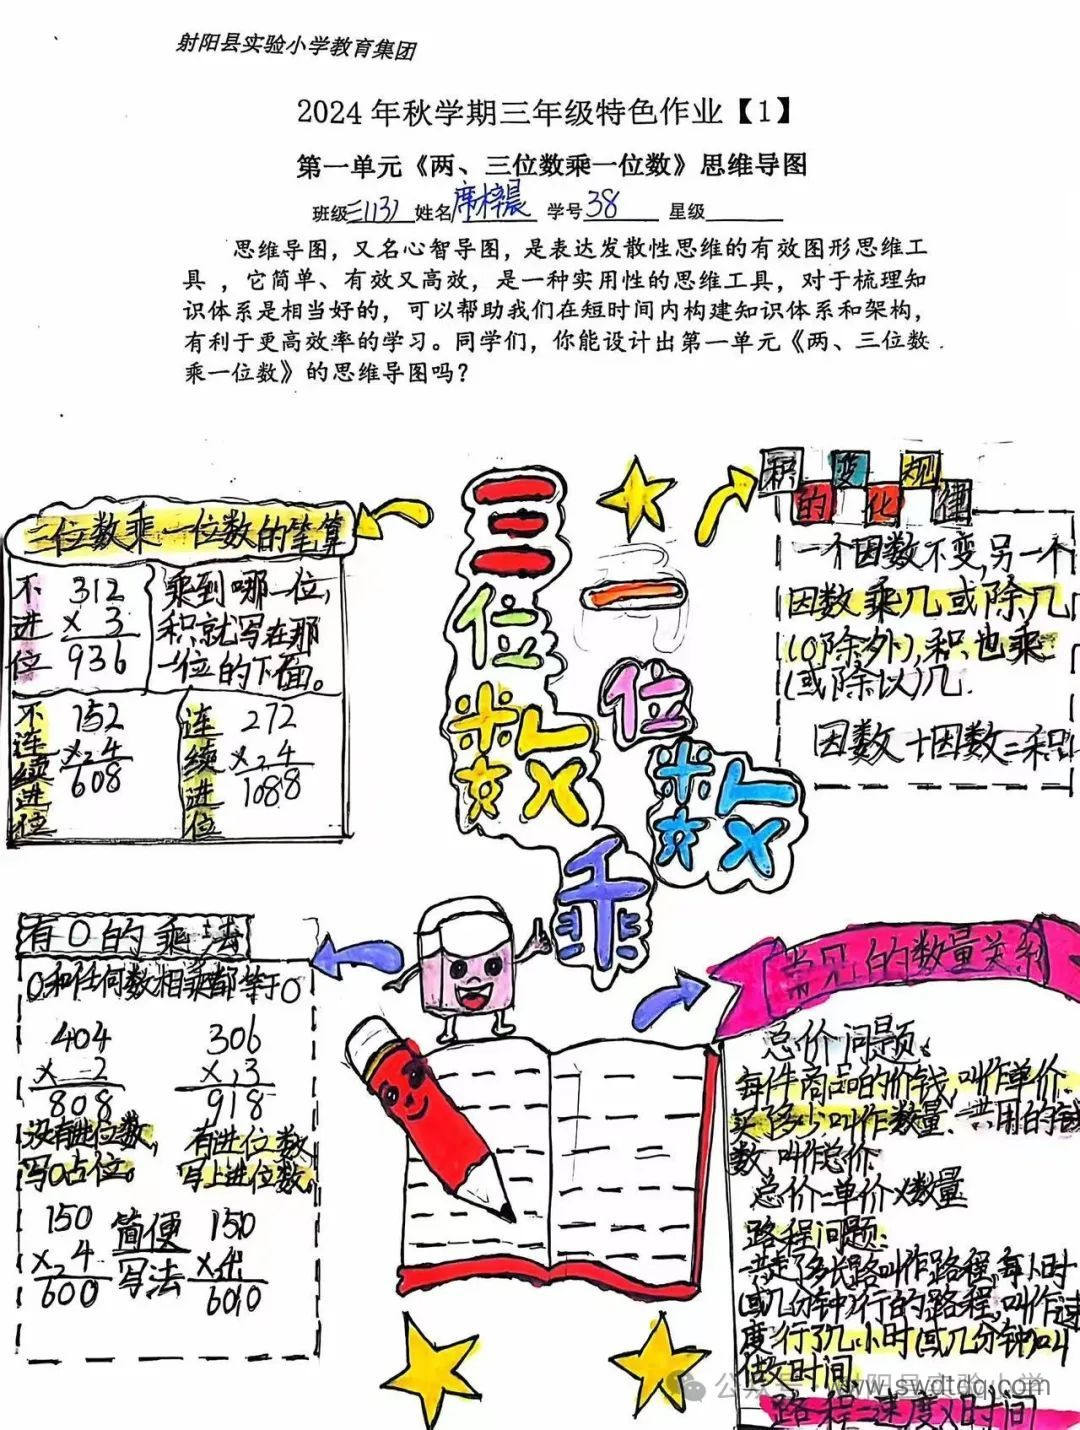 射阳县实验小学教育集团
2024年秋学期三年级特色作业【1】
第一单元《两、三位数乘一位数》思维导图
班级三(13) 姓名席梓晨 学号38 星级
思维导图，又名心智导图，是表达发散性思维的有效图形思维工
具 ，它简单、有效又高效，是一种实用性的思维工具，对于梳理知
识体系是相当好的，可以帮助我们在短时间内构建知识体系和架构，
有利于更高效率的学习。同学们，你能设计出第一单元《两、三位数
乘一位数》的思维导图吗？
三位数乘一位数的笔算
不进位
312
×3
936
乘到哪一位，
积就写在那
一位的下面。
不连续进位
152
×4
608
连续进位
272
×4
1088
三位数
乘
一位数
积的变化规律
一个因数不变，另一个
因数乘几或除几
(0除外)，积也乘
(或除以)几.
因数+因数=积
有0的乘法
0和任何数相乘都等于0
404
×2
808
没有进位数，
写0占位。
306
×3
918
有进位数
写上进位数。
150
×4
600
简便
写法
150
×4
600
常见的数量关系
总价问题：
每件商品的价钱，叫作单价.
买了多少叫作数量.一共用的钱
数叫作总价.
总价=单价×数量
路程问题：
一共走了多长路叫作路程,每小时
(或几分钟)行的路程，叫作速
度行了几小时(或几分钟)叫
做时间.
路程=速度×时间
公众号·射阳县实验小学
www.swdtdq.com